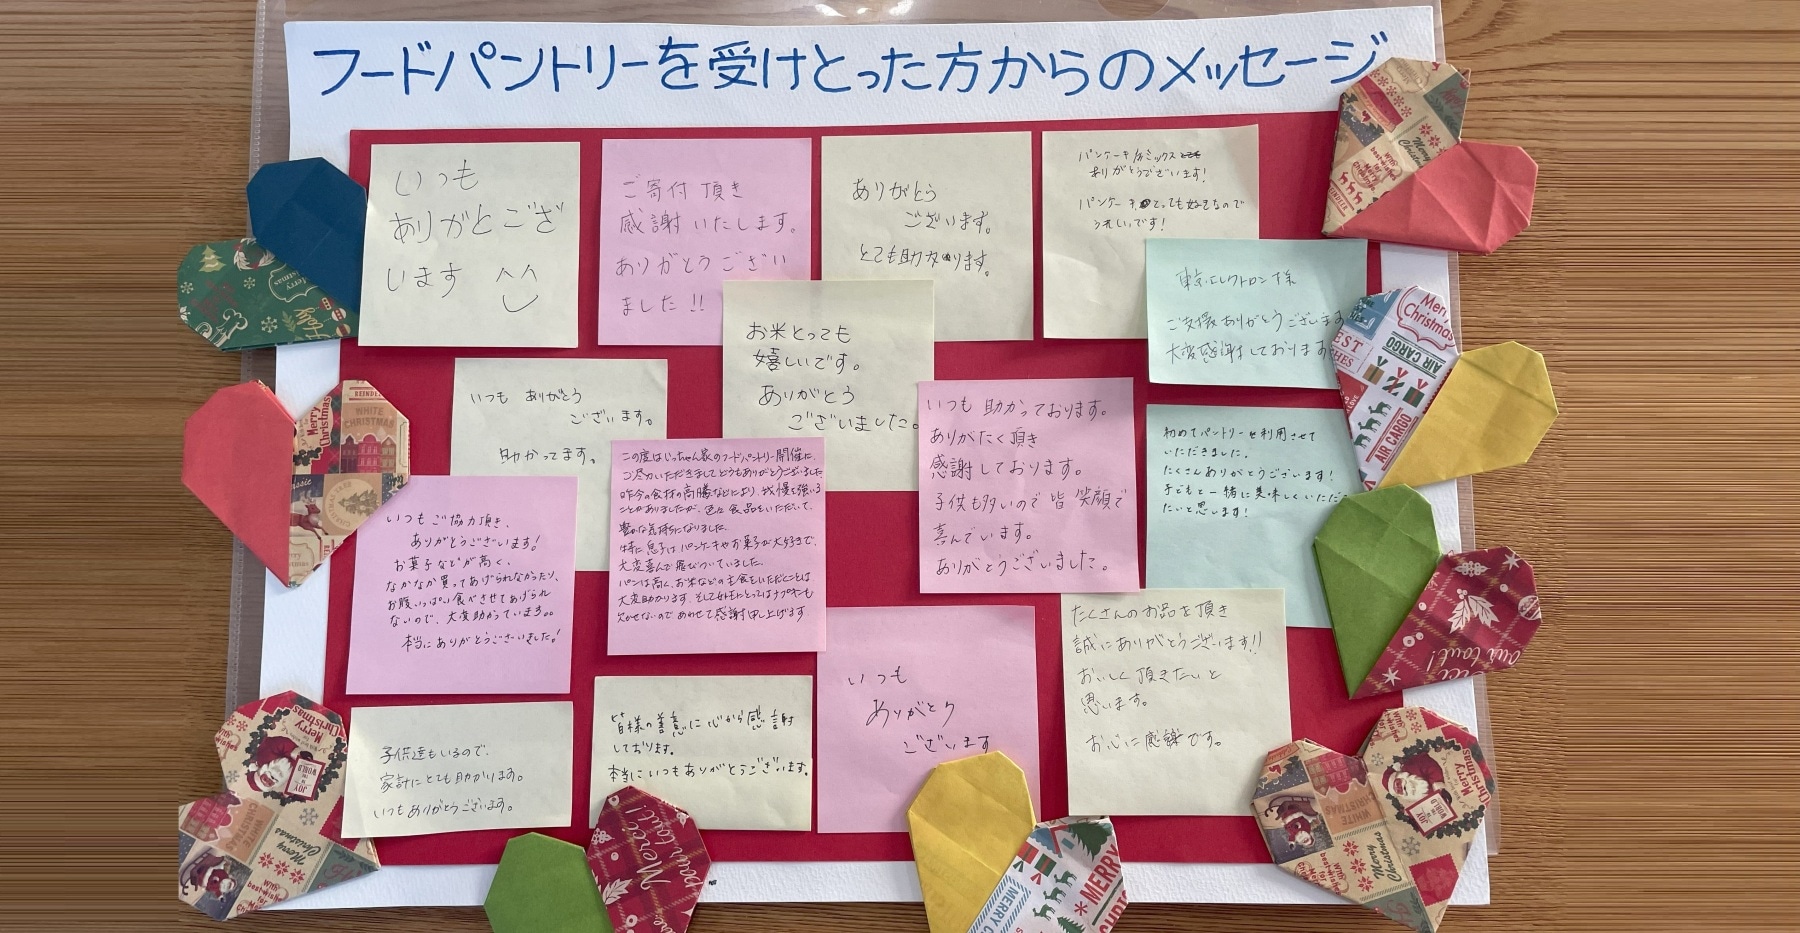 フードパントリーを受けとった方からのメッセージ
いつも
ありがとござ
います
ご寄付頂き
感謝いたします。
ありがとうござい
ました!!
ありがとう
ございます。
とても助かります。
パンケーキミックス
ありがとうございます!
パンケーキとっても好きなので
うれしいです!
東京エレクトロン様
ご支援ありがとうございます
大変感謝しております
お米とっても
嬉しいです。
ありがとう
ございました。
いつも ありがとう
ございます。
助かってます。
いつも 助かっております。
ありがたく頂き
感謝しております。
子供も多いので 皆 笑顔で
喜んでいます。
ありがとうございました。
初めてパントリーを利用させて
いただきました。
たくさんありがとうございます!
子どもと一緒に美味しくいただき
たいと思います!
この度はじっちゃん家のフードパントリー開催に、
ご尽力いただきましてどうもありがとうございました
昨今の食材の高騰などにより、我慢を強いる
ことがありましたが、色々食品をいただいて、
豊かな気持ちになりました。
特に息子はパンケーキやお菓子が大好きで、
大変喜んで飛びついていました。
パンは高く、お米などの主食をいただくことは
大変助かります。そして女性にとってはナプキンも
欠かせないのであわせて感謝申し上げます
いつもご協力頂き、
ありがとうございます!
お菓子などが高く、
なかなか買ってあげられなかったり、
お腹いっぱい食べさせてあげられ
ないので、大変助かっています。
本当にありがとうございました!
たくさんのお品を頂き
誠にありがとうございます!!
おいしく頂きたいと
思います。
お心に感謝です。
いつも
ありがとう
ございます
皆様の善意に心から感謝
しております。
本当にいつもありがとうございます。
子供達もいるので、
家計にとても助かります。
いつもありがとうございます。